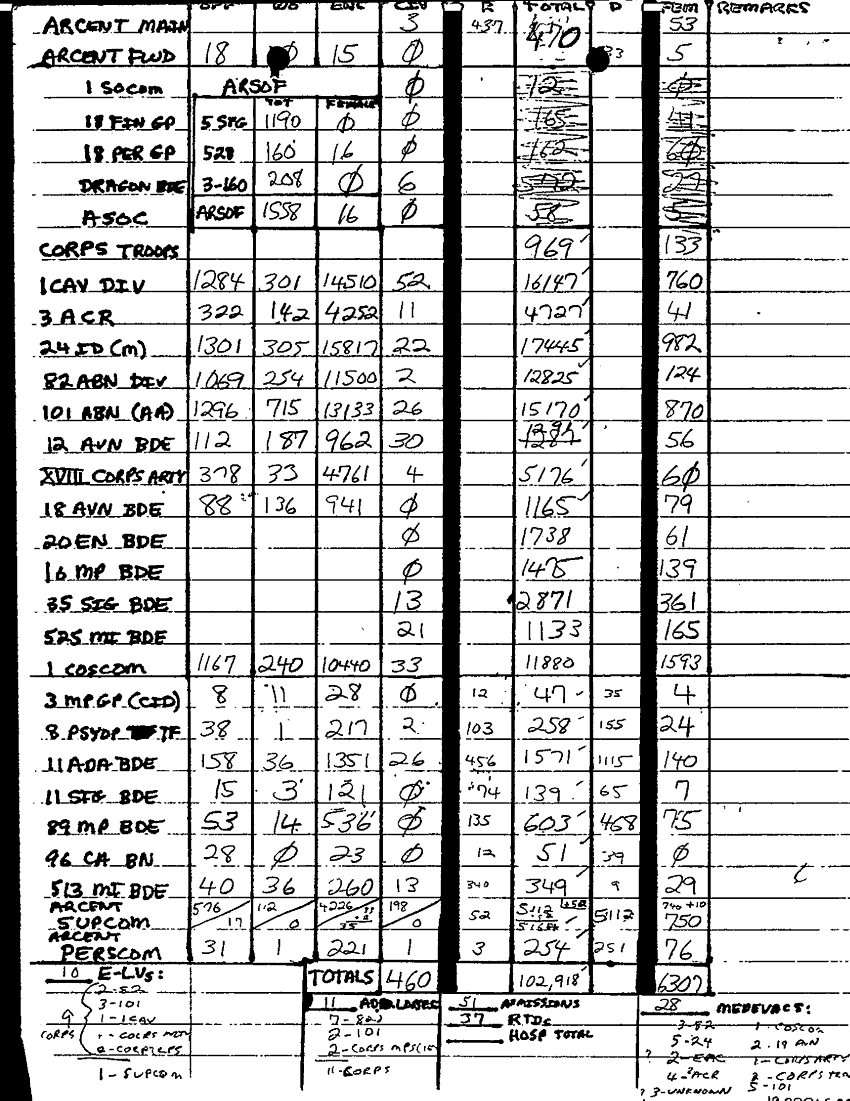 OFF WO ENL CIV R TOTAL D FEM REMARKS
ARCENT MAIN 3 437 470 53
ARCENT FWD 18 Ø 15 Ø 33 5
1 SOCOM ARSOF Ø 12 Ø
TOT FEMALE
18 FIN GP 5 SIG 1190 Ø Ø 165 41
18 PER GP 528 160 16 Ø 162 6Ø
DRAGON BDE 3-160 208 Ø 6
ASOC ARSOF 1558 16 Ø 58 5
CORPS TROOPS 969 133
1 CAV DIV 1284 301 14510 52 16147 760
3 ACR 322 142 4252 11 4727 41
24 ID (M) 1301 305 15817 22 17445 982
82 ABN DIV 1069 254 11500 2 12825 124
101 ABN (AA) 1296 715 13133 26 15170 870
12 AVN BDE 112 187 962 30 1291 56
XVIII CORPS ARTY 378 33 4761 4 5176 6Ø
18 AVN BDE 88 136 941 Ø 1165 79
20 EN BDE Ø 1738 61
16 MP BDE Ø 1475 139
35 SIG BDE 13 2871 361
525 MI BDE 21 1133 165
1 COSCOM 1167 240 10440 33 11880 1593
3 MP GP (CID) 8 11 28 Ø 12 47 35 4
8 PSYOP TF 38 1 217 2 103 258 155 24
11 ADA BDE 158 36 1351 26 456 1571 1115 140
11 SIG BDE 15 3 121 Ø 74 139 65 7
89 MP BDE 53 14 536 Ø 135 603 468 75
96 CA BN 28 Ø 23 Ø 12 51 39 Ø
513 MI BDE 40 36 260 13 340 349 9 29
ARCENT 576 112 4226 198 5112 +52 740 +10
SUPCOM 17 0 35 0 52 5164 5112 750
ARCENT
PERSCOM 31 1 221 1 3 254 251 76
TOTALS 460 102,918 6307
10 E-LVs:
2-82
3-101
9 1-1CAV
CORPS
1-SUPCOM
11
7-82
2-101
2-CORPS
11-CORPS
51 ADMISSIONS
37 RTDs
HOSP TOTAL
28 MEDEVACT:
3-82 1-COSCOM
5-24
2-EAC 1-CORPS ARTY
4-3ACR
? 3-UNKNOWN 5-101